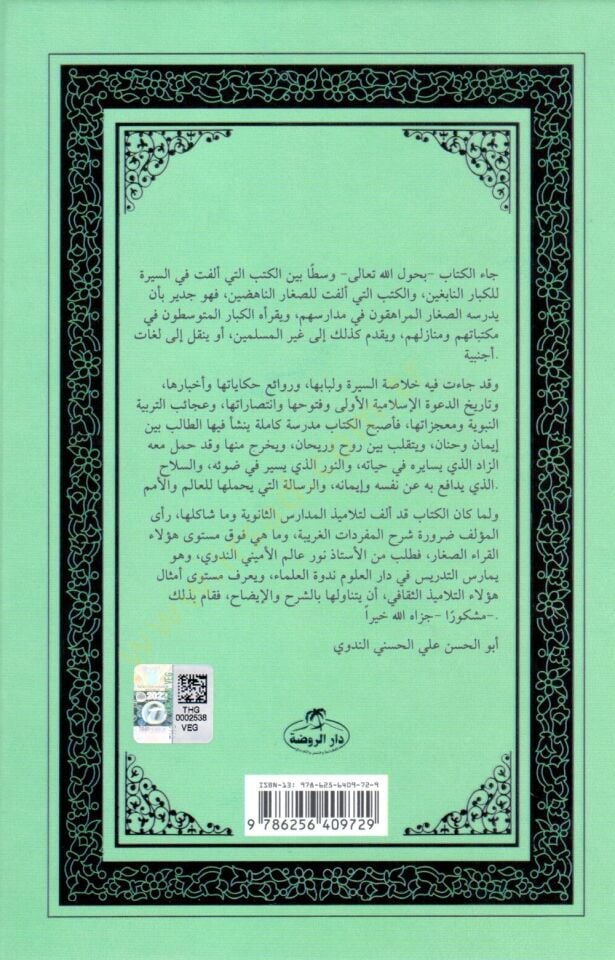 جاء الكتاب -بحول الله تعالى- وسطًا بين الكتب التي ألفت في السيرة
للكبار النابغين، والكتب التي ألفت للصغار الناهضين، فهو جدير بأن
يدرسه الصغار المراهقون في مدارسهم، ويقرأه الكبار المتوسطون في
مكتباتهم ومنازلهم، ويقدم كذلك إلى غير المسلمين، أو ينقل إلى لغات
.أجنبية
وقد جاءت فيه خلاصة السيرة ولبابها، وروائع حكاياتها وأخبارها،
وتاريخ الدعوة الإسلامية الأولى وفتوحها وانتصاراتها، وعجائب التربية
النبوية ومعجزاتها، فأصبح الكتاب مدرسة كاملة ينشأ فيها الطالب بين
إيمان وحنان، ويتقلب بين روح وريحان، ويخرج منها وقد حمل معه
الزاد الذي يسايره في حياته، والنور الذي يسير في ضوئه، والسلاح
.الذي يدافع به عن نفسه وإيمانه، والرسالة التي يحملها للعالم والأمم
ولما كان الكتاب قد ألف لتلاميذ المدارس الثانوية وما شاكلها، رأى
المؤلف ضرورة شرح المفردات الغريبة، وما هي فوق مستوى هؤلاء
القراء الصغار، فطلب من الأستاذ نور عالم الأميني الندوي، وهو
يمارس التدريس في دار العلوم ندوة العلماء، ويعرف مستوى أمثال
هؤلاء التلاميذ الثقافي، أن يتناولها بالشرح والإيضاح، فقام بذلك
.-مشكورًا -جزاه الله خيراً
أبو الحسن علي الحسني الندوي
THG
0002538
VEG
دار الروضة
ISBN-13: 978-625-6409-72-9
9 786256 409729